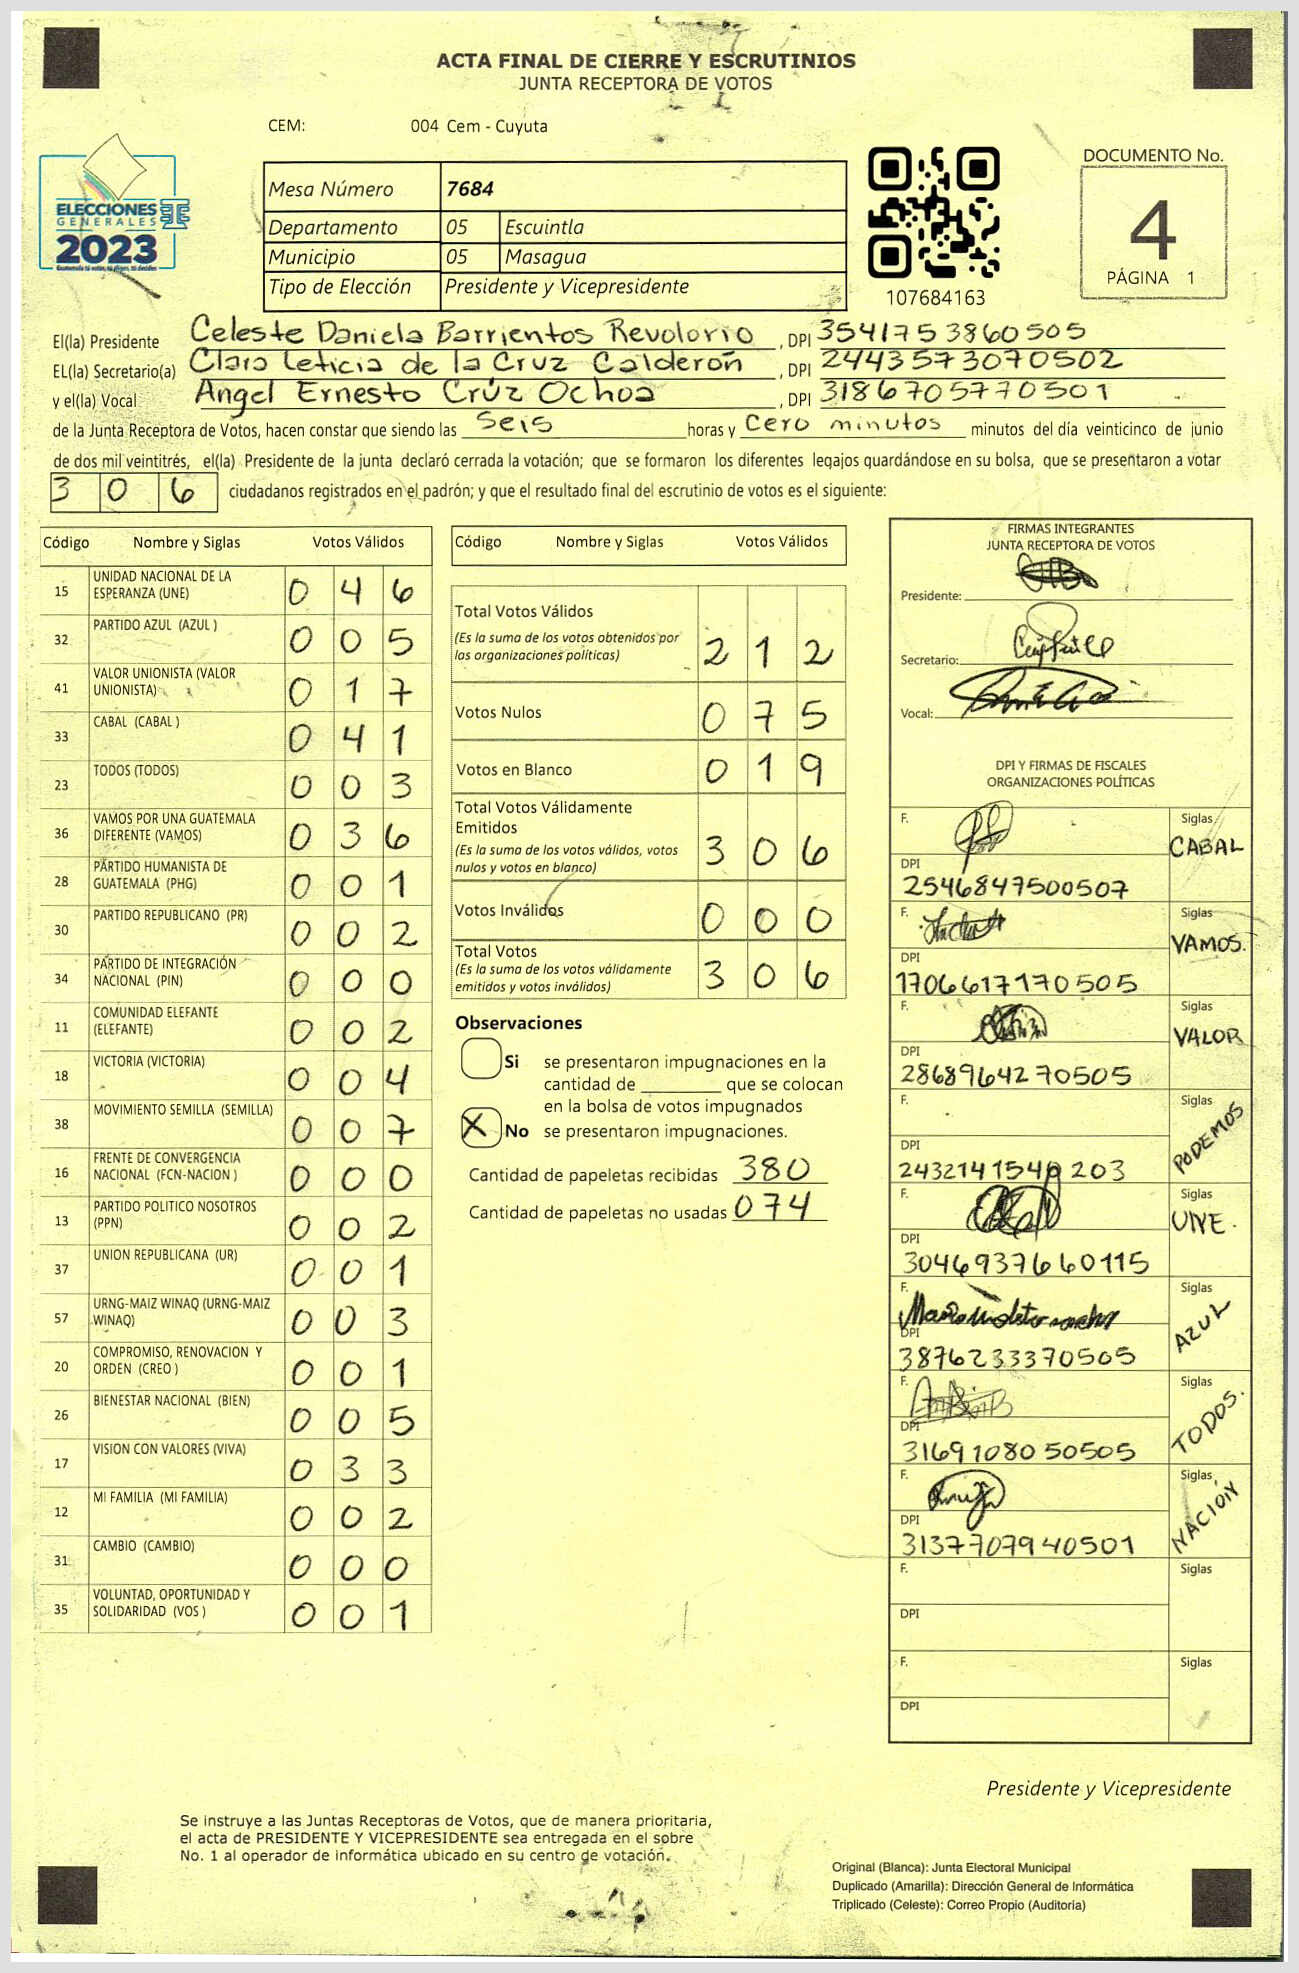 ACTA FINAL DE CIERRE Y ESCRUTINIOS
JUNTA RECEPTORA DE VOTOS
CEM: 004 Cem - Cuyuta
ELECCIONES
GENERALES
2023
Mesa Número 7684
Departamento 05 Escuintla
Municipio 05 Masagua
Tipo de Elección Presidente y Vicepresidente
107684163
DOCUMENTO No.
4
PÁGINA 1
El(la) Presidente Celeste Daniela Barrientos Revolorio , DPI 3541753860505
EL(la) Secretario(a) Clara Leticia de la Cruz Calderón , DPI 2443573070502
y el(la) Vocal Angel Ernesto Crúz Ochoa , DPI 3186705770501
de la Junta Receptora de Votos, hacen constar que siendo las Seis horas y Cero minutos minutos del día veinticinco de junio
de dos mil veintitrés, el(la) Presidente de la junta declaró cerrada la votación; que se formaron los diferentes legajos guardándose en su bolsa, que se presentaron a votar
306 ciudadanos registrados en el padrón; y que el resultado final del escrutinio de votos es el siguiente:
Código Nombre y Siglas Votos Válidos
15 UNIDAD NACIONAL DE LA ESPERANZA (UNE) 0 4 6
32 PARTIDO AZUL (AZUL ) 0 0 5
41 VALOR UNIONISTA (VALOR UNIONISTA) 0 1 7
33 CABAL (CABAL ) 0 4 1
23 TODOS (TODOS) 0 0 3
36 VAMOS POR UNA GUATEMALA DIFERENTE (VAMOS) 0 3 6
28 PARTIDO HUMANISTA DE GUATEMALA (PHG) 0 0 1
30 PARTIDO REPUBLICANO (PR) 0 0 2
34 PARTIDO DE INTEGRACIÓN NACIONAL (PIN) 0 0 0
11 COMUNIDAD ELEFANTE (ELEFANTE) 0 0 2
18 VICTORIA (VICTORIA) 0 0 4
38 MOVIMIENTO SEMILLA (SEMILLA) 0 0 7
16 FRENTE DE CONVERGENCIA NACIONAL (FCN-NACION ) 0 0 0
13 PARTIDO POLITICO NOSOTROS (PPN) 0 0 2
37 UNION REPUBLICANA (UR) 0 0 1
57 URNG-MAIZ WINAQ (URNG-MAIZ WINAQ) 0 0 3
20 COMPROMISO, RENOVACION Y ORDEN (CREO ) 0 0 1
26 BIENESTAR NACIONAL (BIEN) 0 0 5
17 VISION CON VALORES (VIVA) 0 3 3
12 MI FAMILIA (MI FAMILIA) 0 0 2
31 CAMBIO (CAMBIO) 0 0 0
35 VOLUNTAD, OPORTUNIDAD Y SOLIDARIDAD (VOS ) 0 0 1
Código Nombre y Siglas Votos Válidos
Total Votos Válidos
(Es la suma de los votos obtenidos por
las organizaciones políticas) 2 1 2
Votos Nulos 0 7 5
Votos en Blanco 0 1 9
Total Votos Válidamente
Emitidos
(Es la suma de los votos válidos, votos
nulos y votos en blanco) 3 0 6
Votos Inválidos 0 0 0
Total Votos
(Es la suma de los votos válidamente
emitidos y votos inválidos) 3 0 6
Observaciones
Si se presentaron impugnaciones en la
cantidad de ________ que se colocan
en la bolsa de votos impugnados
X No se presentaron impugnaciones.
Cantidad de papeletas recibidas 380
Cantidad de papeletas no usadas 074
FIRMAS INTEGRANTES
JUNTA RECEPTORA DE VOTOS
Presidente:
Secretario:
Vocal:
DPI Y FIRMAS DE FISCALES
ORGANIZACIONES POLÍTICAS
F. Siglas CABAL
DPI 2546847500507
F. Siglas VAMOS.
DPI 1706617170505
F. Siglas VALOR
DPI 2868964270505
F. Siglas PODEMOS
DPI 203
F. Siglas UNE.
DPI 3046937660115
F. Siglas AZUL
DPI 3876233370505
F. Siglas TODOS.
DPI 3169108050505
F. Siglas NACIÓN
DPI 3137707940501
F. Siglas
DPI
F. Siglas
DPI
Presidente y Vicepresidente
Se instruye a las Juntas Receptoras de Votos, que de manera prioritaria,
el acta de PRESIDENTE Y VICEPRESIDENTE sea entregada en el sobre
No. 1 al operador de informática ubicado en su centro de votación.
Original (Blanca): Junta Electoral Municipal
Duplicado (Amarilla): Dirección General de Informática
Triplicado (Celeste): Correo Propio (Auditoria)